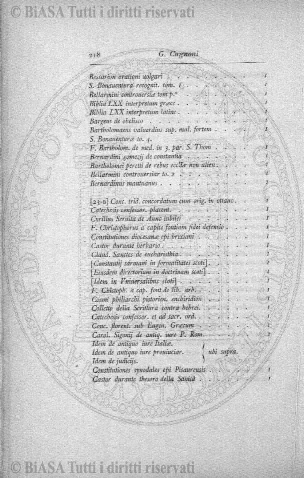 © BiASA Tutti i diritti riservati
218 G. Cugnoni
Rosarum orationi volgari 1
S. Bonaventura recognit. tom. 1
Bellarmini controversia tom p.º
Biblia LXX interpretum græce
Biblia LXX interpretum latine
Bargeus de obelisco
Bartholomeus valuardius sup. mal. fortem
S. Bonaventura to. 4.
F. Bartholom. de med. in 3. par. S. Thom
Bernardini gomezij de constantia
Bartholomei peretti de rebus
Bellarmini controversiar to. 2
Bernardinus mantuanus
Conc. trid. concordatum cum orig. in ottavo
Catechesis confessar. placent.
Cyrillus Serulla de Anno iubilei
F. Christophorus a capite fontium fidei defensio
Constitutiones diocesanæ epi brixiani
Castor durante herbario
Claud. Sanctes de eucharisthia
[Constantij sarnani in formalitates scoti]
[Eiusdem directorium in doctrinam scoti]
[Idem in Vniuersalibus scoti]
F. Cristoph. a cap. font de lib. arb.
Cesani philiarchi pistorien. enchiridion
Colletto della Scrittura contra hebrei
Catechesis confessar. et ad sacr. ord.
Conc. florent. sub Eugen. Græcum
Carol. Sigonij de antiq. iure P. Rom
Idem de antiquo iure Italiæ.
Idem de antiquo iure prouinciar } ubi supra.
Idem de judicijs.
Constitutiones synodales epi Pisaurensis
Castor durante thesoro della Sanità
© BiASA Tutti i diritti riservati